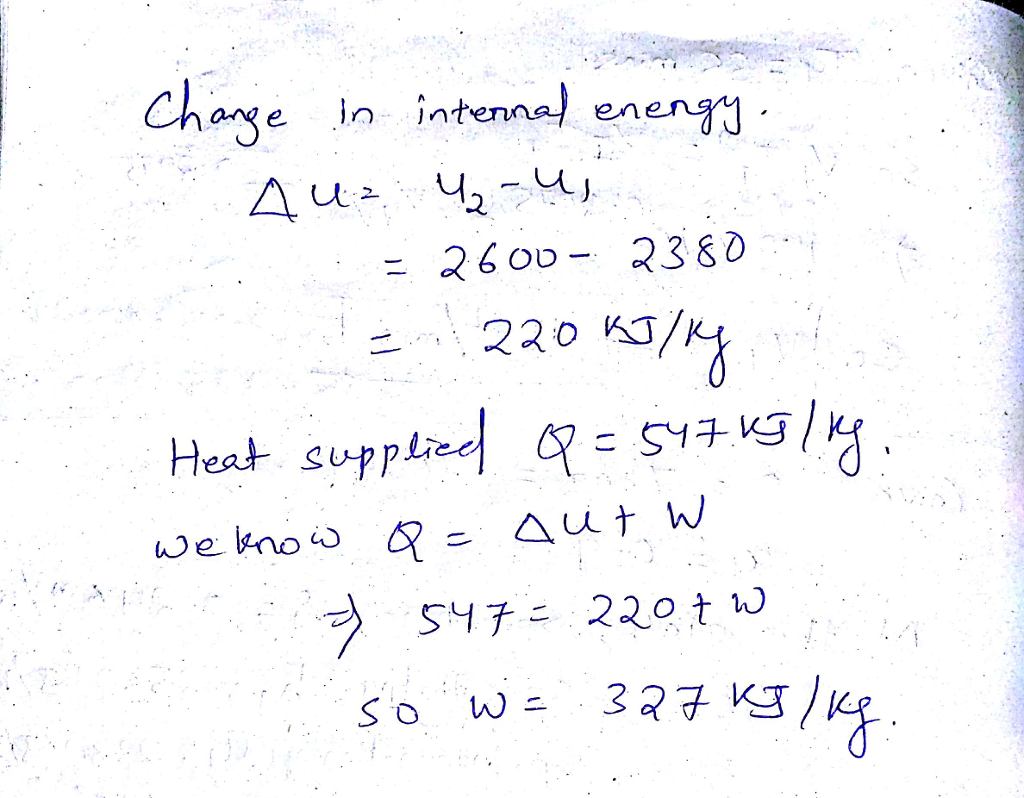 Change in internal energy.
Δu = u₂ - u₁
= 2600 - 2380
= 220 KJ/kg
Heat supplied Q = 547 KJ/kg.
we know Q = Δu + W
⇒ 547 = 220 + W
so W = 327 KJ/kg.